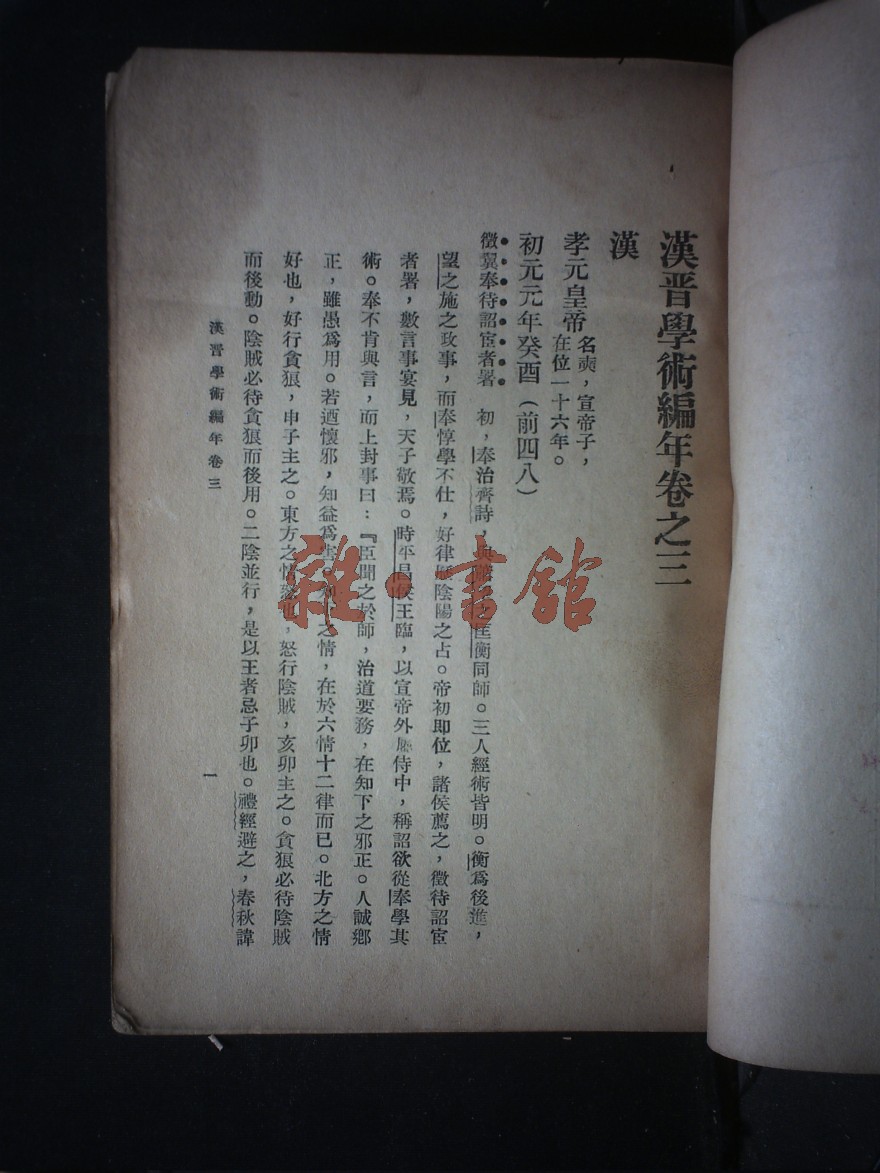 漢晉學術編年卷之三
漢
孝元皇帝 名奭，宣帝子，
在位一十六年。
初元元年癸酉（前四八）
徵翼奉待詔宦者署　初，奉治齊詩，與匡衡同師。三人經術皆明。衡爲後進，
望之施之政事，而奉惇學不仕，好律陰陽之占。帝初卽位，諸侯薦之，徵待詔宦
者署，數言事宴見，天子敬焉。時平昌侯王臨，以宣帝外屬侍中，稱詔欲從奉學其
術。奉不肯與言，而上封事曰：『臣聞之於師，治道要務，在知下之邪正。人誠鄉
正，雖愚爲用。若迺懷邪，知益爲害。之情，在於六情十二律而已。北方之情
好也，好行貪狼，申子主之。東方之情怒也，怒行陰賊，亥卯主之。貪狼必待陰賊
而後動。陰賊必待貪狼而後用。二陰並行，是以王者忌子卯也。禮經避之，春秋諱
漢晉學術編年卷三
一
雜·書館